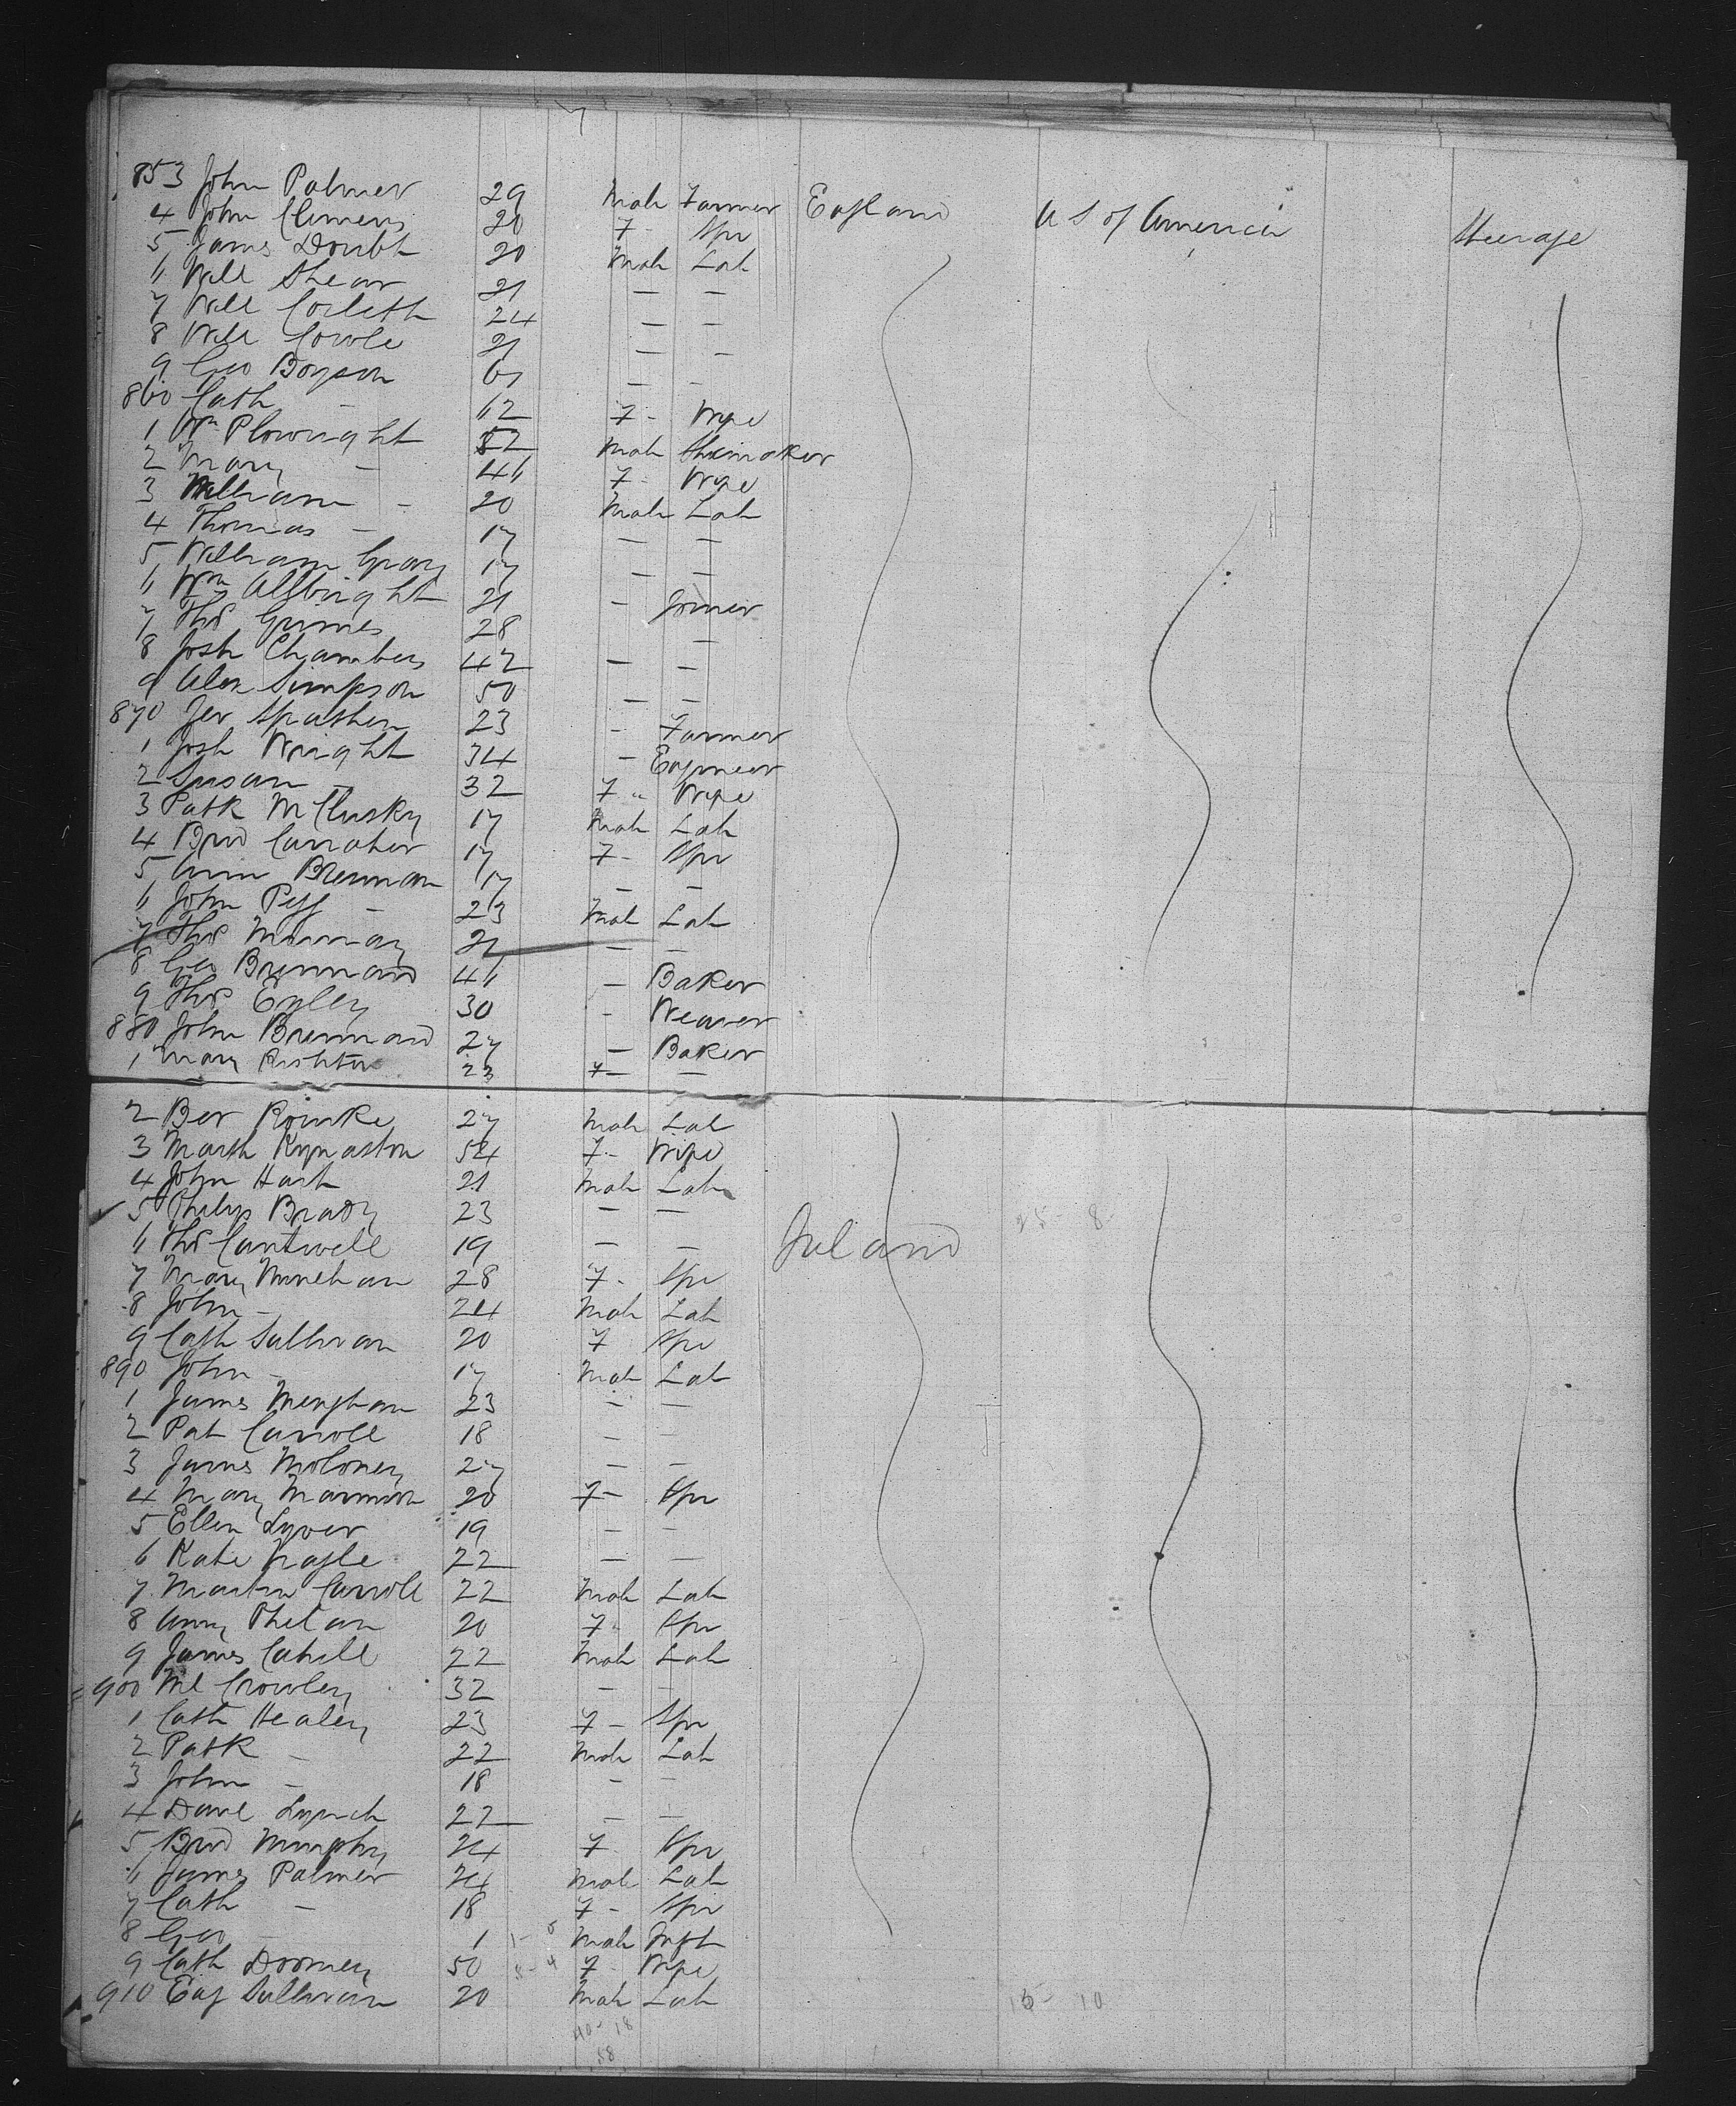 853 John Palmer 29 Male Farmer England U S of America Steerage
4 John Clemens 20 F - Spr
5 James Doubt 20 Male Lab
6 Will Shear 21 — —
7 Will Corleth 24 — —
8 Will Cowle 21 — —
9 Geo Boyson 61 — -
860 Cath — 62 F - Wife
1 Wm Plowright 52 Male Shoemaker
2 Mary — 46 F - Wife
3 William - 20 Male Lab
4 Thomas — 17 — —
5 William Gray 17 — —
6 Wm Allbright 21 - Joiner
7 Thos Grimes 28 —
8 Josh Chambers 42 — —
9 Alex Simpson 50 — —
870 Jer 23 - Farmer
1 Josh Wright 34 - Engineer
2 Susan — 32 F " Wife
3 Patk McClusky 17 Male Lab
4 Brid Carraher 17 F - Spr
5 Ann Brennan 17 — —
6 John 23 Male Lab
7 Thos Murray 21 — —
8 Geo Brennand 46 — Baker
9 Thos Egley 30 - Weaver
880 John Brennand 27 — Baker
1 Mary Rishton 23 F — —
2 Ber Rourke 27 Male Lab
3 Marth Kynaston 54 F - Wife
4 John Hart 21 Male Lab
5 Philip Brady 23 — —
6 Thos Cantwell 19 — — Ireland 25 - 8
7 Mary Minehan 28 F - Spr
8 John — 24 Male Lab
9 Cath Sullivan 20 F Spr
890 John — 17 Male Lab
1 James Menghan 23 — —
2 Pat Carroll 18 — —
3 James Moloney 27 — —
4 Mary 20 F — Spr
5 Ellen 19 — —
6 Kate Nagle 22 — —
7 Martin Carroll 22 Male Lab
8 Anny Phelan 20 F - Spr
9 James Cahill 22 Male Lab
900 Ml Crowley 32 — —
1 Cath Healey 23 F - Spr
2 Patk — 22 Male Lab
3 John — 18 — —
4 Danl Lynch 22 — —
5 Brid Murphy 24 F Spr
6 James Palmer 24 Male Lab
7 Cath — 18 F - Spr
8 Geo 1 Male Inft
9 Cath Doomey 50 F - Wife
910 Eug Sullivan 20 Male Lab 15 - 10
40 - 18
58